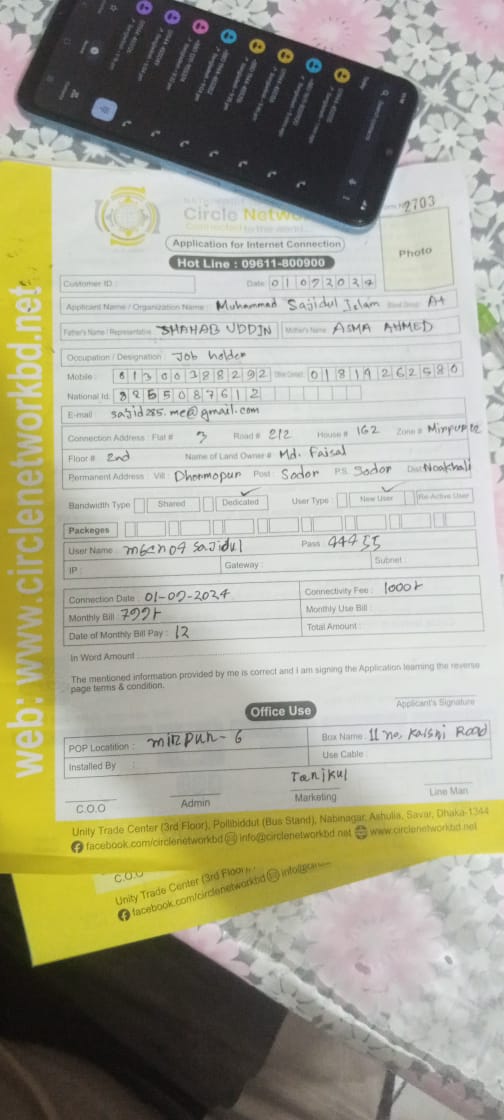 2703
Circle Netwo
Connected to the world...
Application for Internet Connection
Hot Line : 09611-800900
Photo
Customer ID :
Date: 01072024
Applicant Name / Organization Name : Muhammad Sajidul Islam Blood Group: A+
Father's Name / Representative : SHAHAB UDDIN Mother's Name : ASMA AHMED
Occupation / Designation : Job holder
Mobile : 01300388292 Other Contact : 01819262580
National Id. 8255087612
E-mail sajid285.me@gmail.com
Connection Address : Flat # 3 Road # 212 House # 162 Zone # Mirpur 12
Floor # 2nd Name of Land Owner # Md. Faisal
Permanent Address : Vill : Dhormopur Post : Sodor P.S. Sodor Dist: Noakhali
Bandwidth Type Shared Dedicated User Type : New User Re-Active User
Packeges
User Name : Pass 44455
IP : Gateway : Subnet :
Connection Date : 01-07-2024 Connectivity Fee : 1000৳
Monthly Bill : Monthly Use Bill :
Date of Monthly Bill Pay : 12 Total Amount :
In Word Amount
The mentioned information provided by me is correct and I am signing the Application learning the reverse
page terms & condition.
Applicant's Signature
Office Use
POP Locatition : mirpur-6 Box Name : 11 no. Kalshi Road
Installed By : Use Cable :
Tarikul
C.O.O Admin Marketing Line Man
Unity Trade Center (3rd Floor), Pollibiddut (Bus Stand), Nabinagar, Ashulia, Savar, Dhaka-1344
facebook.com/circlenetworkbd info@circlenetworkbd.net www.circlenetworkbd.net
web: www.circlenetworkbd.net
C.O.O
Unity Trade Center (3rd Floor),
facebook.com/circlenetworkbd